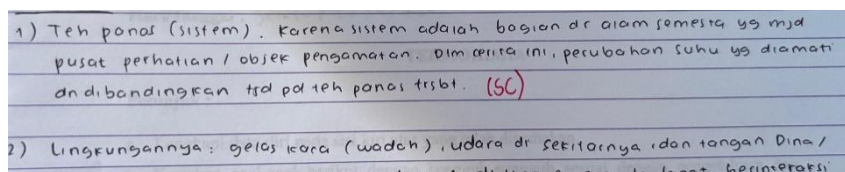 1) Teh panas (sistem). Karena sistem adalah bagian dr alam semesta yg mjd
pusat perhatian / objek pengamatan. Dlm cerita ini, perubahan suhu yg diamati
dn dibandingkan tjd pd teh panas trsbt. (SC)
2) Lingkungannya : gelas kaca (wadah), udara di sekitarnya, dan tangan Dina /
berinteraksi